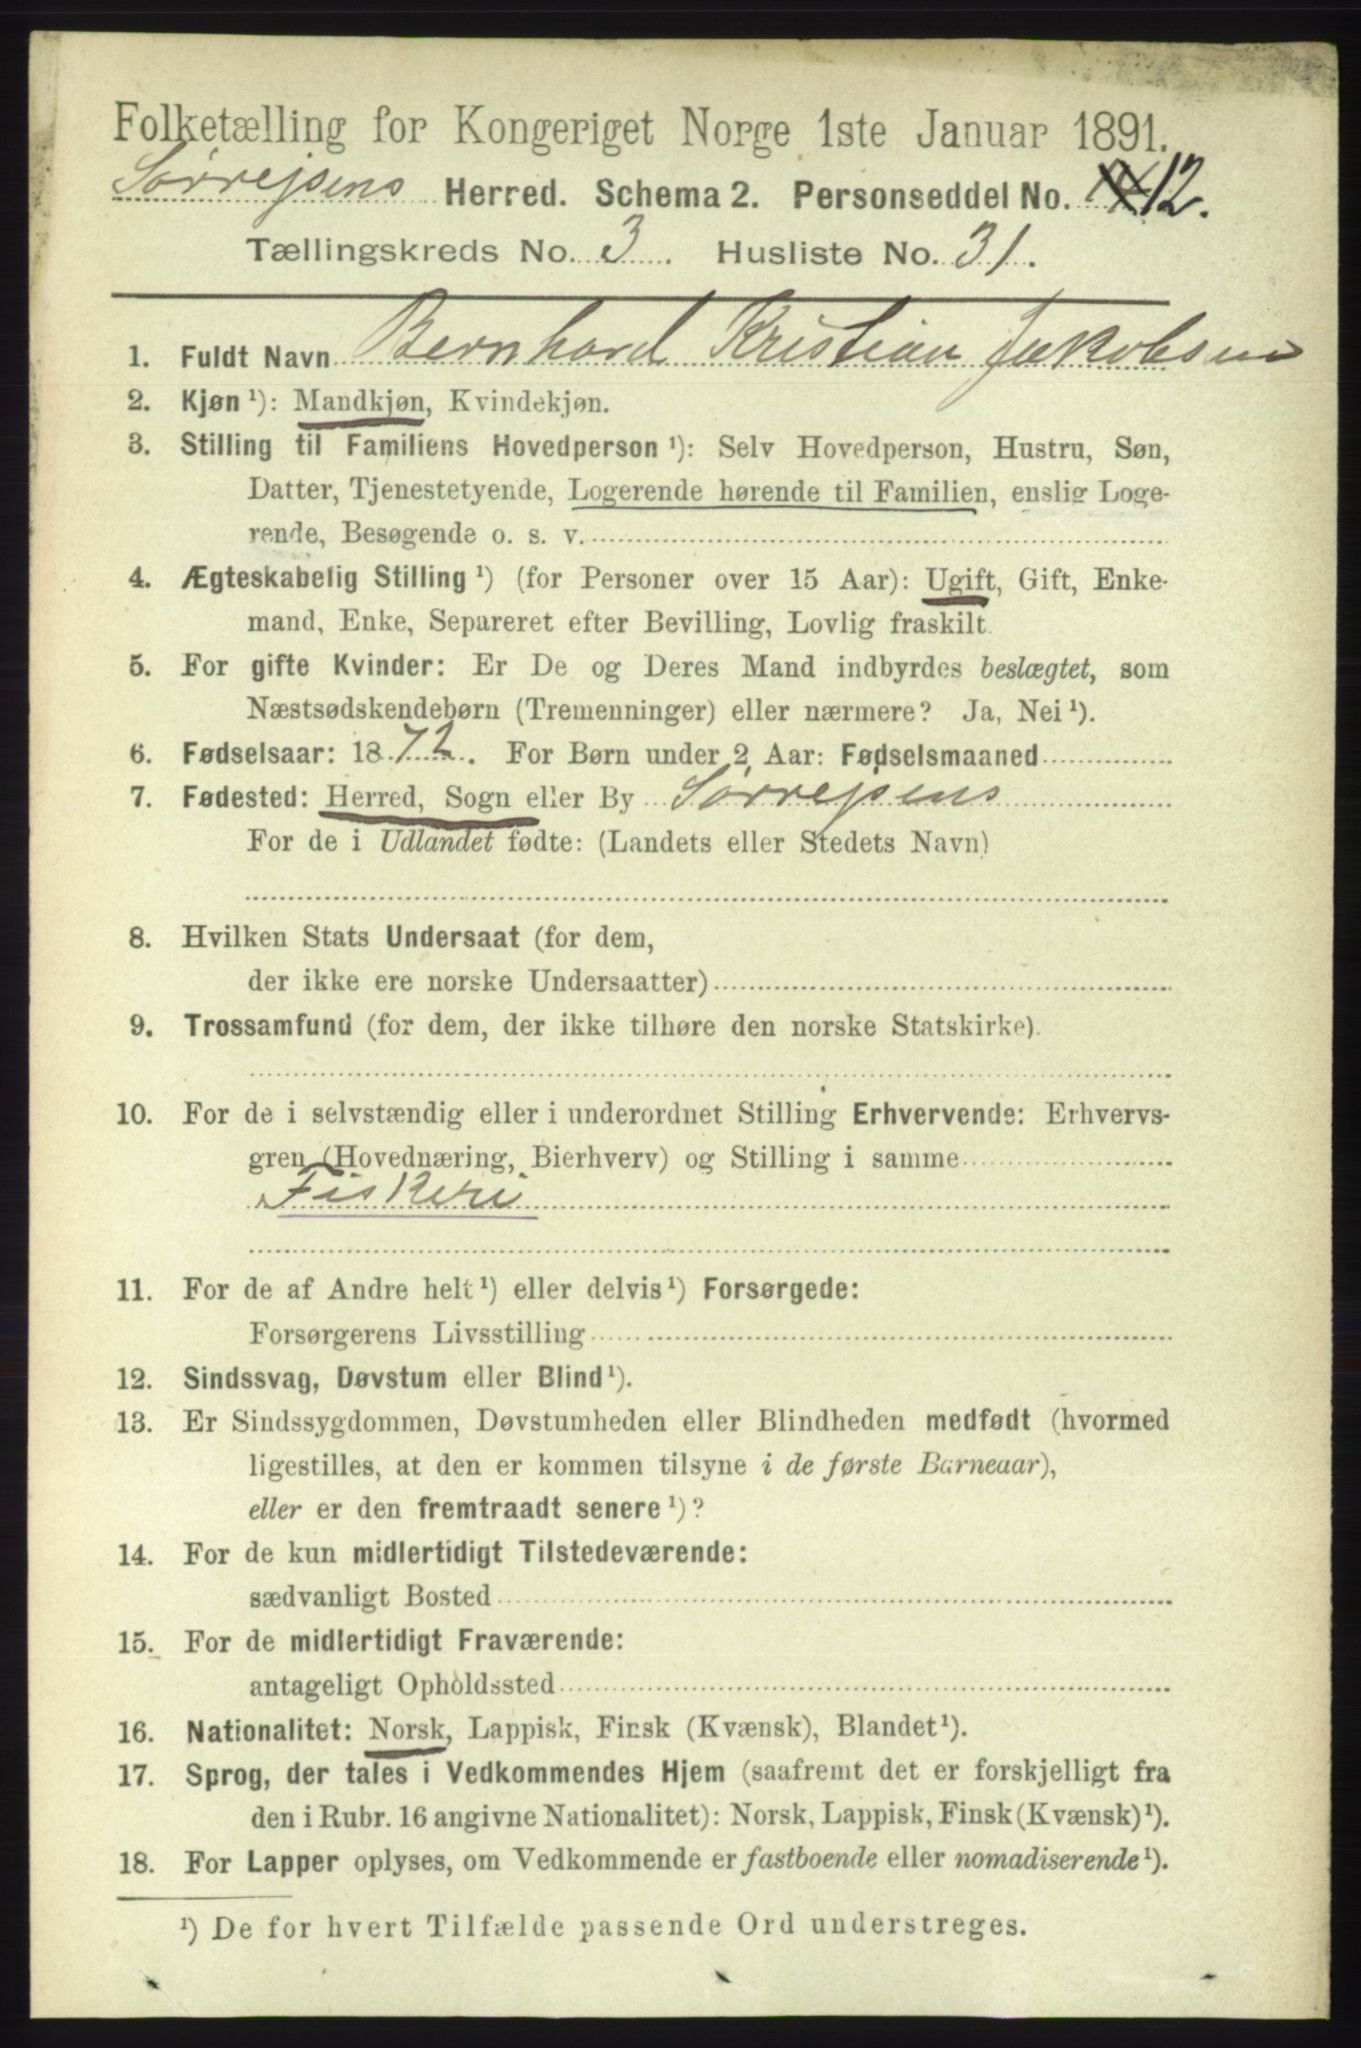 Folketælling for Kongeriget Norge 1ste Januar 1891.
Sørrejsens Herred. Schema 2. Personseddel No. 12.
Tællingskreds No. 3. Husliste No. 31.
1. Fuldt Navn Bernhard Kristian Jakobsen
2. Kjøn ¹): Mandkjøn, Kvindekjøn.
3. Stilling til Familiens Hovedperson ¹): Selv Hovedperson, Hustru, Søn,
Datter, Tjenestetyende, Logerende hørende til Familien, enslig Loge-
rende, Besøgende o. s. v.
4. Ægteskabelig Stilling ¹) (for Personer over 15 Aar): Ugift, Gift, Enke-
mand, Enke, Separeret efter Bevilling, Lovlig fraskilt.
5. For gifte Kvinder: Er De og Deres Mand indbyrdes beslægtet, som
Næstsødskendebørn (Tremenninger) eller nærmere? Ja, Nei ¹).
6. Fødselsaar: 1872. For Børn under 2 Aar: Fødselsmaaned
7. Fødested: Herred, Sogn eller By Sørrejsens
For de i Udlandet fødte: (Landets eller Stedets Navn)
8. Hvilken Stats Undersaat (for dem,
der ikke ere norske Undersaatter)
9. Trossamfund (for dem, der ikke tilhøre den norske Statskirke).
10. For de i selvstændig eller i underordnet Stilling Erhvervende: Erhvervs-
gren (Hovednæring, Bierhverv) og Stilling i samme
Fiskeri
11. For de af Andre helt ¹) eller delvis ¹) Forsørgede:
Forsørgerens Livsstilling
12. Sindssvag, Døvstum eller Blind ¹).
13. Er Sindssygdommen, Døvstumheden eller Blindheden medfødt (hvormed
ligestilles, at den er kommen tilsyne i de første Barneaar),
eller er den fremtraadt senere ¹)?
14. For de kun midlertidigt Tilstedeværende:
sædvanligt Bosted
15. For de midlertidigt Fraværende:
antageligt Opholdssted
16. Nationalitet: Norsk, Lappisk, Finsk (Kvænsk), Blandet ¹).
17. Sprog, der tales i Vedkommendes Hjem (saafremt det er forskjelligt fra
den i Rubr. 16 angivne Nationalitet): Norsk, Lappisk, Finsk (Kvænsk) ¹).
18. For Lapper oplyses, om Vedkommende er fastboende eller nomadiserende ¹).
¹) De for hvert Tilfælde passende Ord understreges.